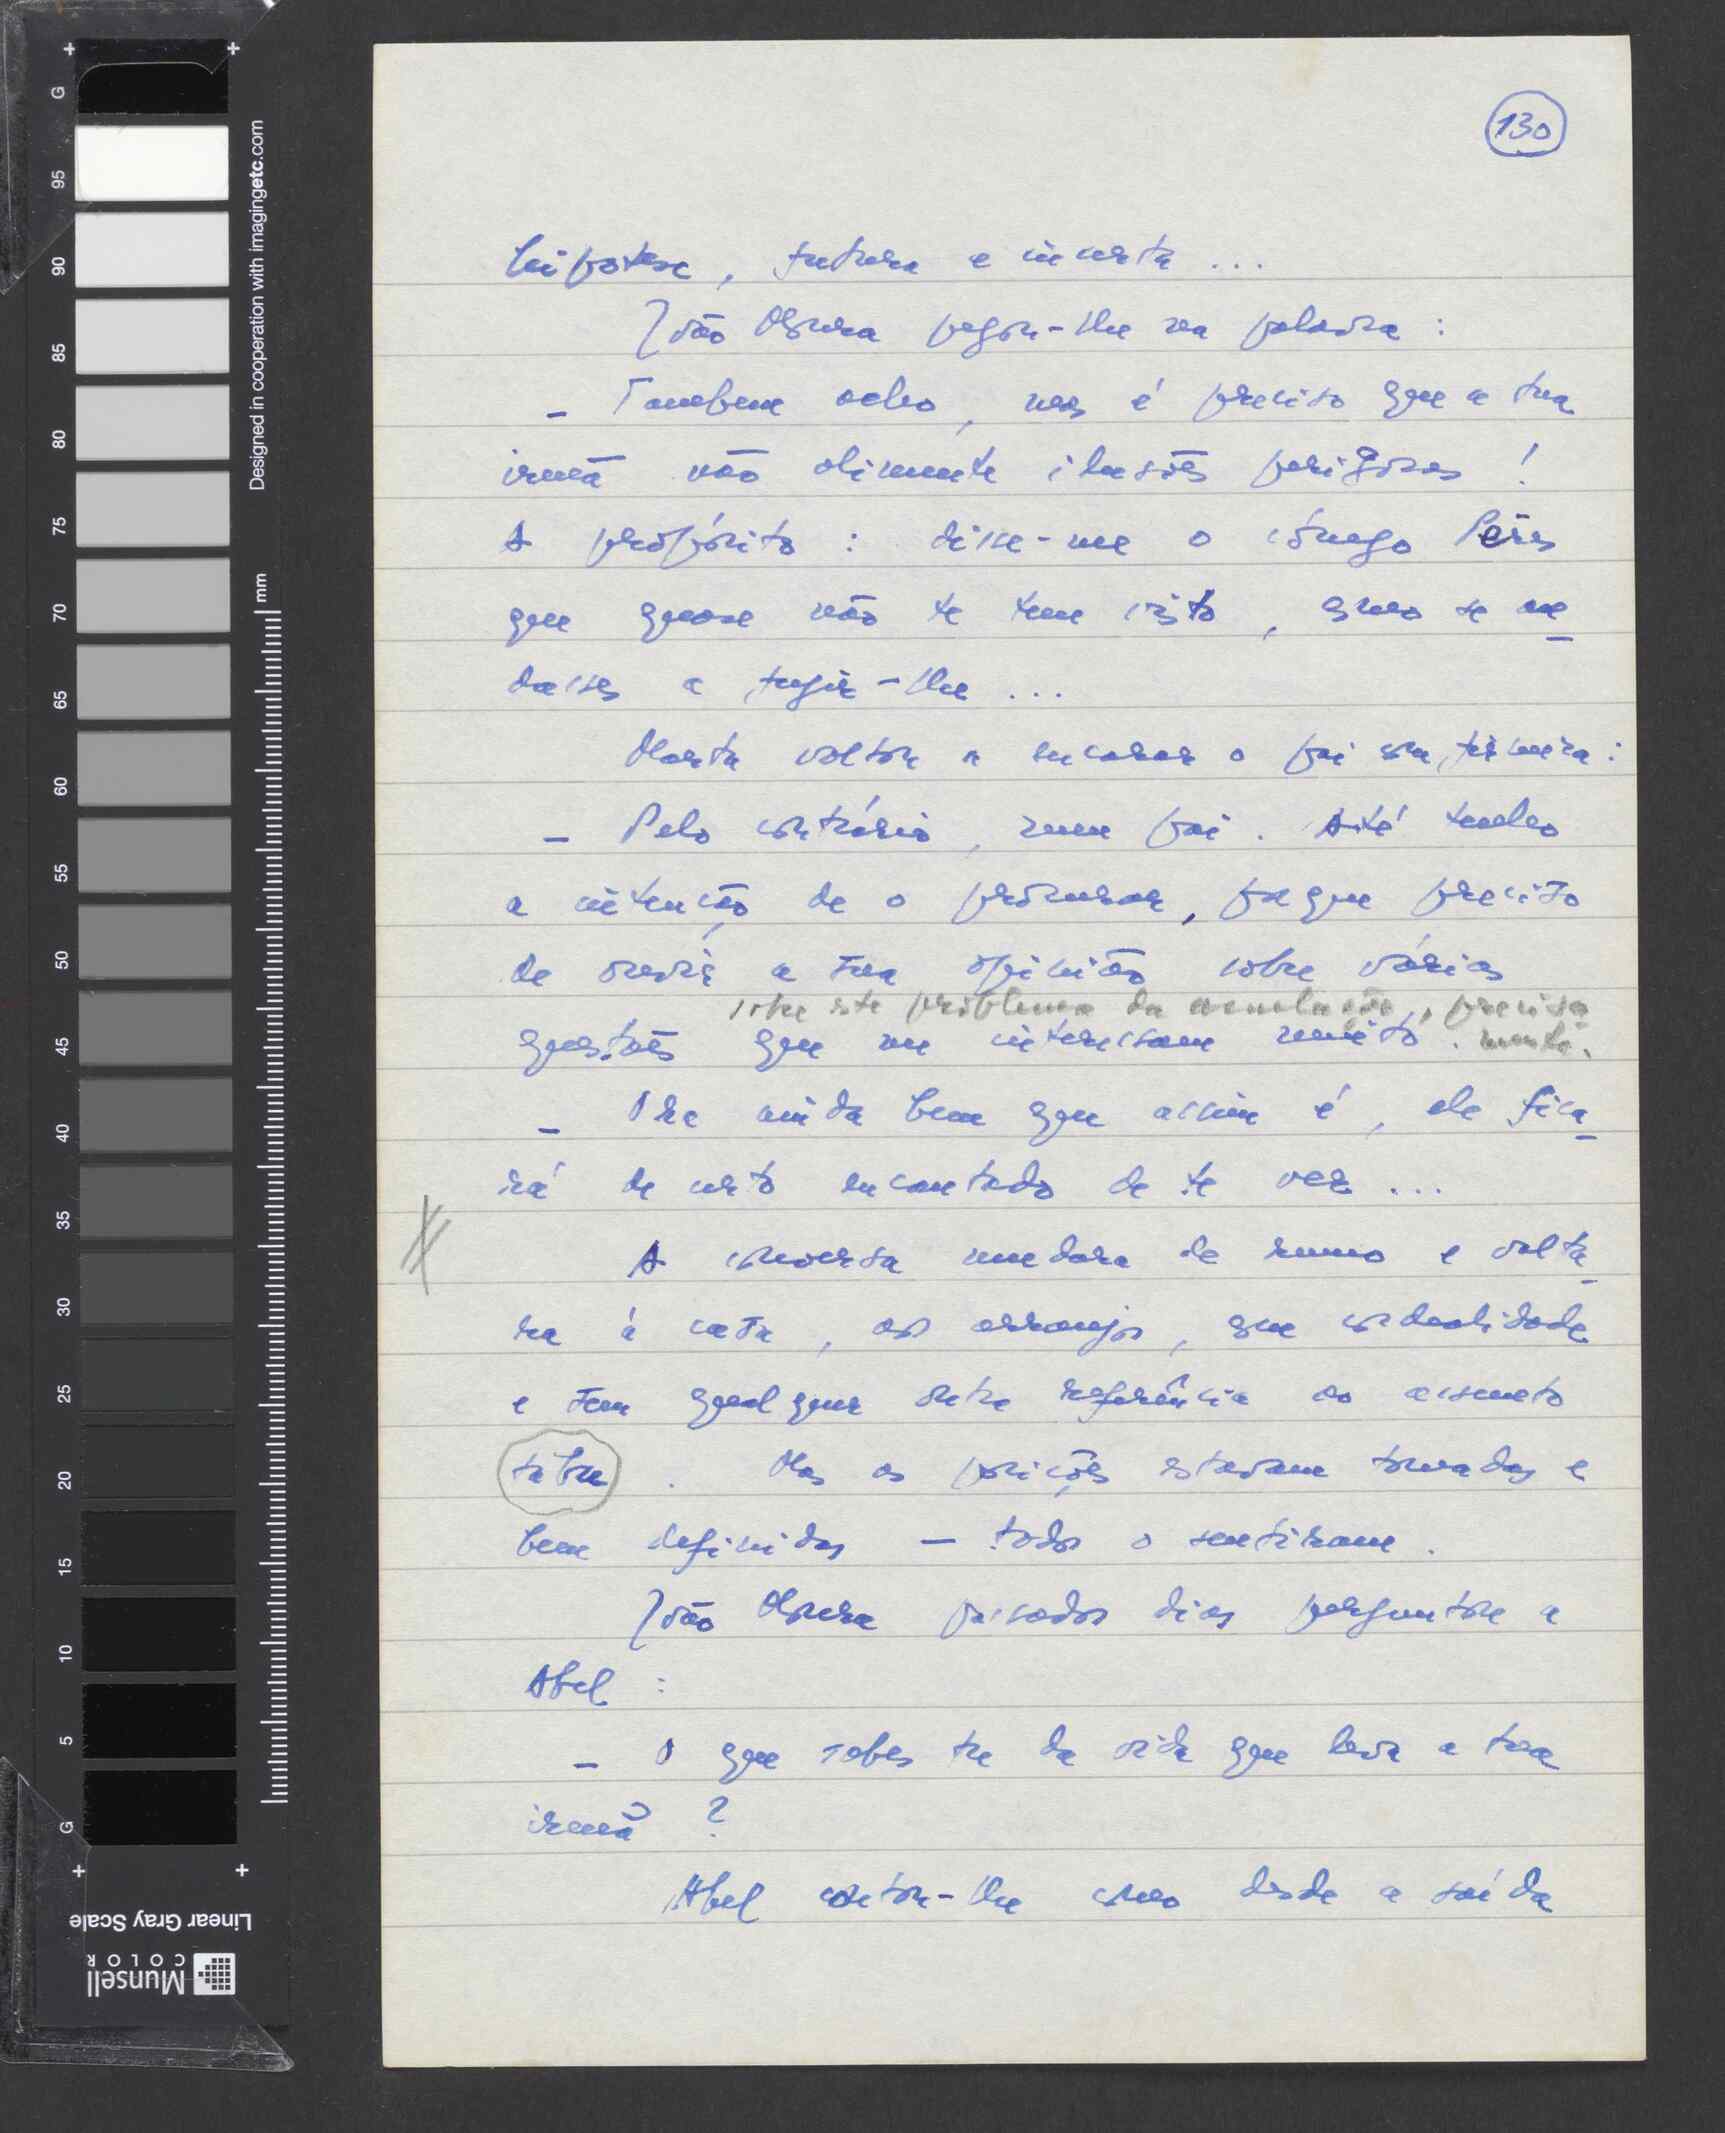 130
hipotese, futura e incerta ...
João Moura pegou-lhe na palavra :
- Tambem acho, mas é preciso que a tua
irmã não alimente ilusões perigosas !
A propósito : disse-me o cónego Peres
que quase não te tem visto, como se an_
dasses a fugir-lhe ...
Marta voltou a encarar o pai com firmeza :
- Pelo contrário, meu pai. Até tenho
a intenção de o procurar, porque preciso
de ouvir a sua opinião sobre várias
sobre este problema da anulação, precisa
questões que me interessam muito. mente.
- Ora ainda bem que assim é, ele fica_
rá de certo encantado de te ver ...
A conversa mudara de rumo e volta_
ra à casa, aos arranjos, sem cordealidade
e sem qualquer outra referência ao assunto
tabu . Mas as posições estavam tomadas e
bem definidas — todos o sentiram .
João Moura passados dias perguntou a
Abel :
- O que sabes tu da vida que leva a tua
irmã ?
Abel contou-lhe como desde a saída
Designed in cooperation with imagingetc.com
mm
G
95
90
85
80
75
70
65
60
55
50
45
40
35
30
25
20
15
10
5
G
Linear Gray Scale
Munsell
COLOR